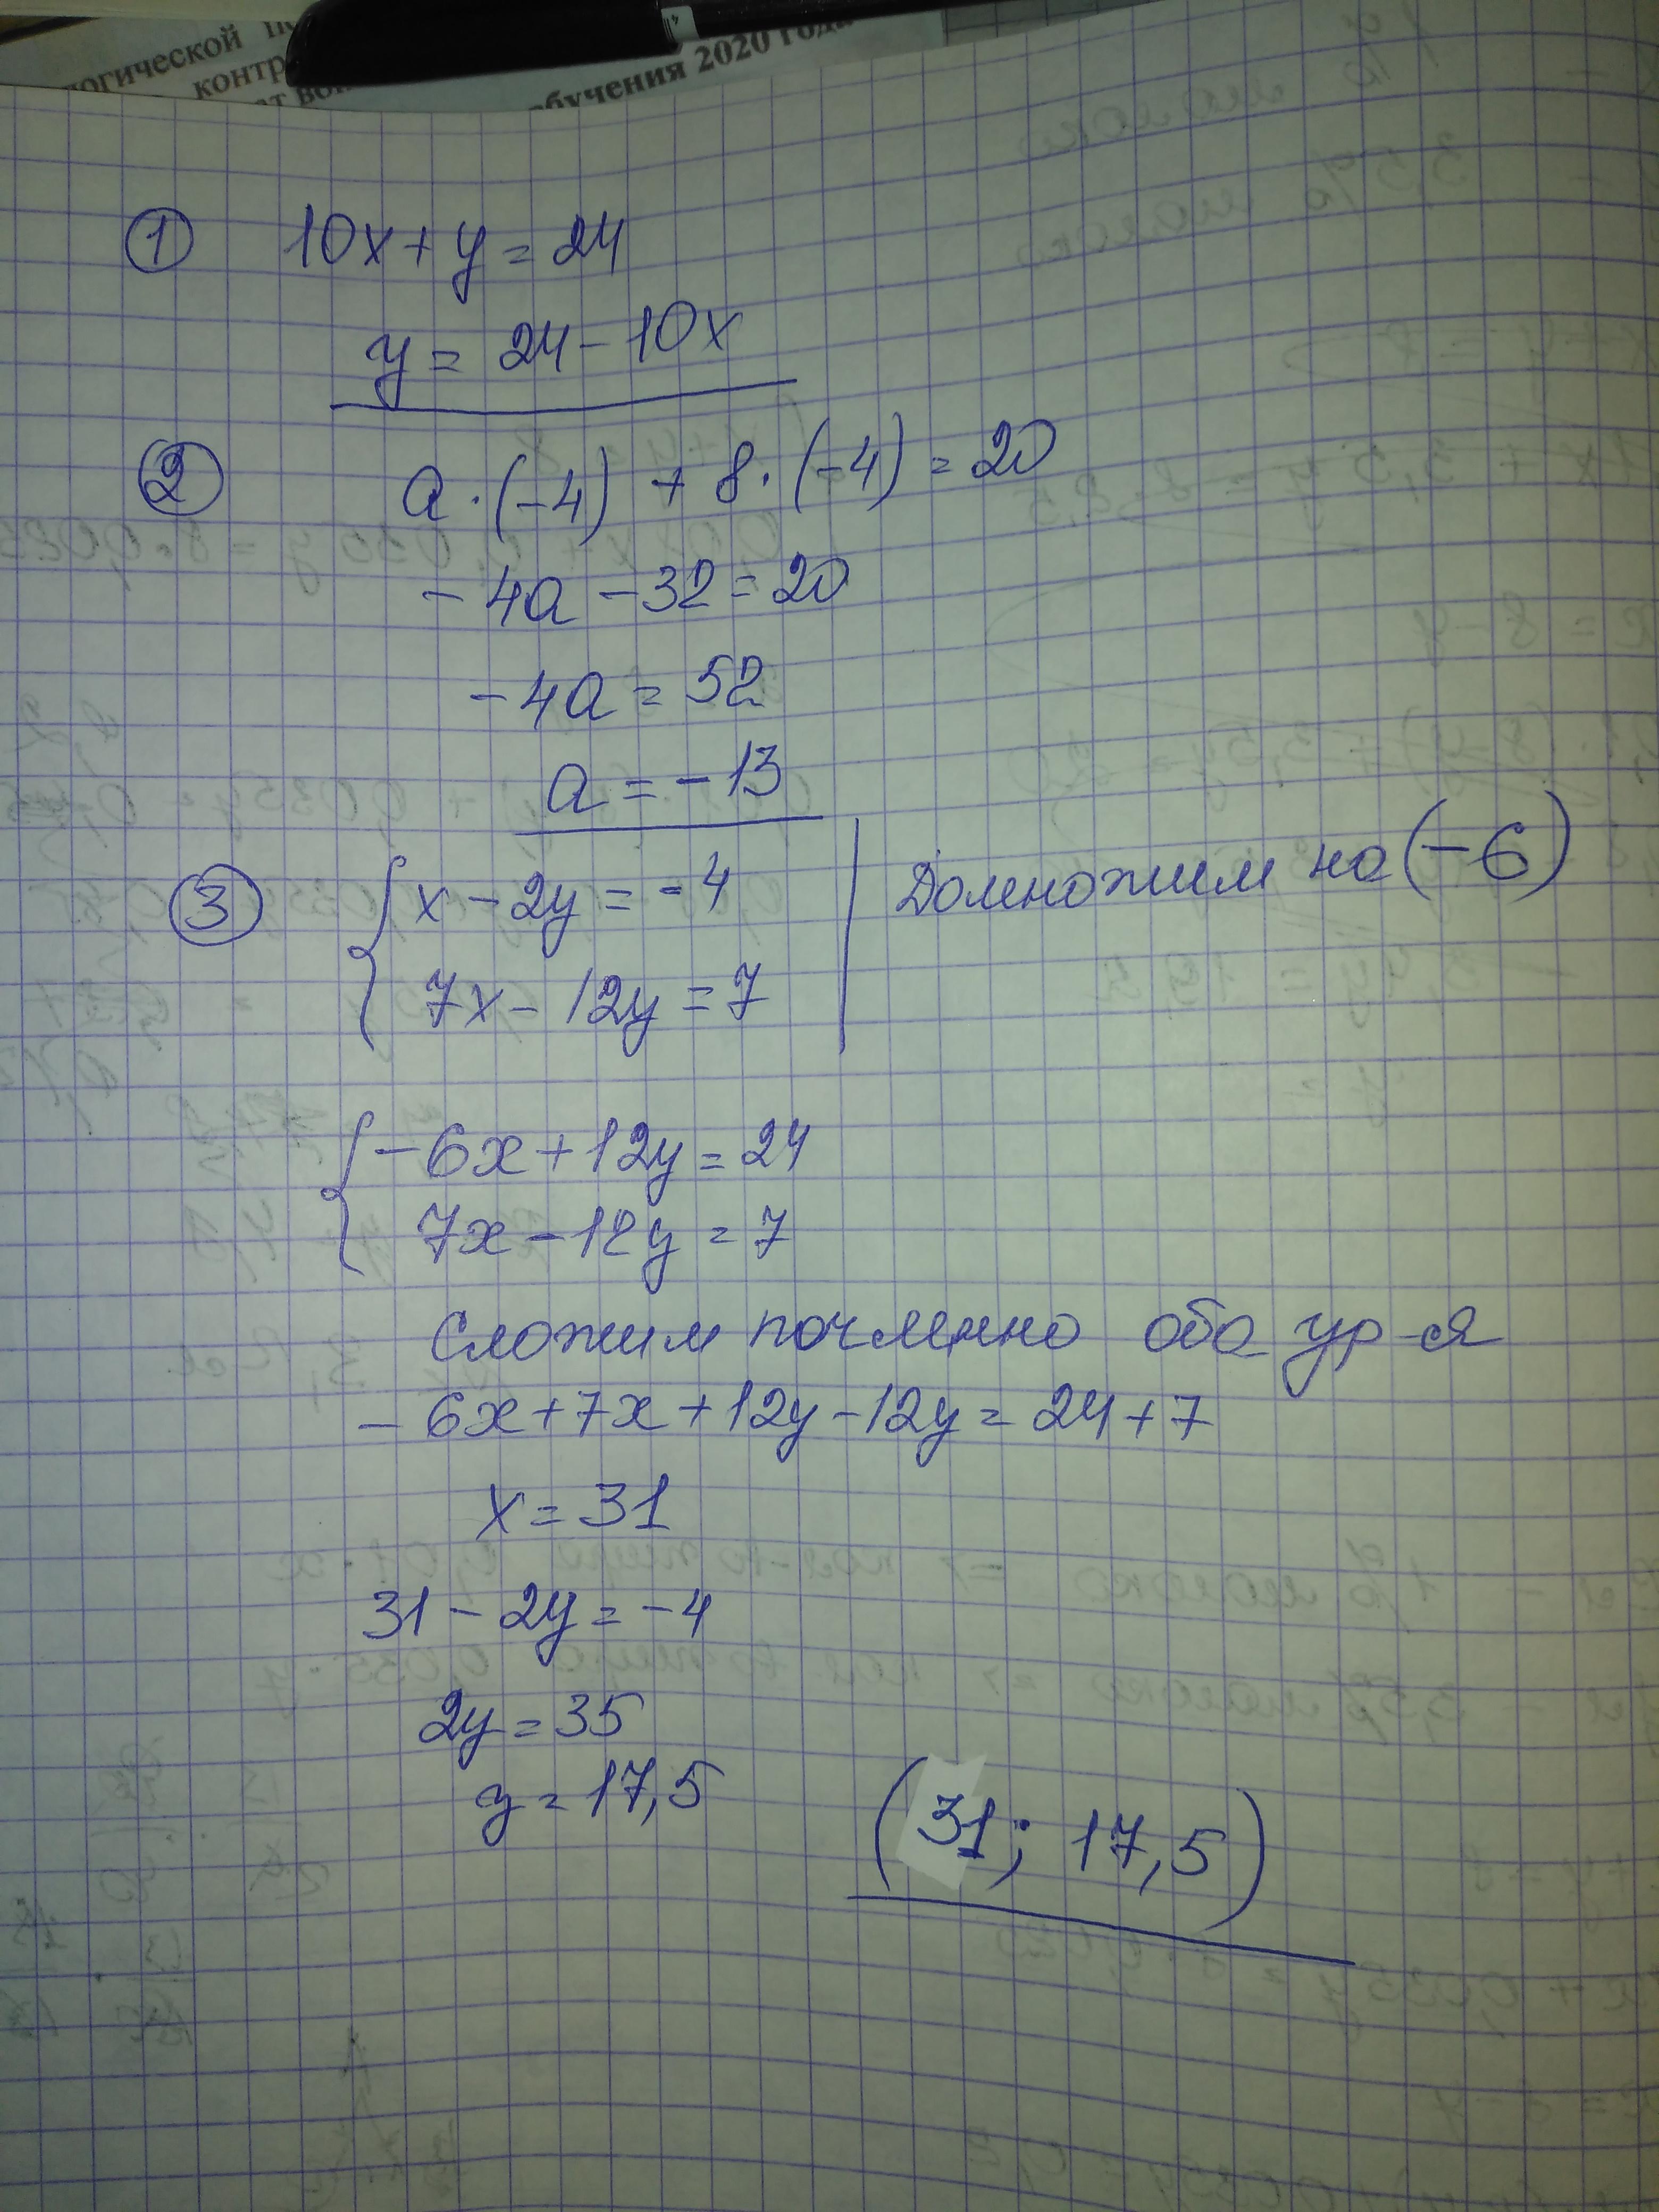 логической
контр
обучения 2020 года
1 10x + y = 24
y = 24 - 10x
2 a · (-4) + 8 · (-4) = 20
- 4a - 32 = 20
- 4a = 52
a = - 13
3 { x - 2y = - 4 | Домножим на (- 6)
7x - 12y = 7
{ - 6x + 12y = 24
7x - 12y = 7
Сложим почленно оба ур-я
- 6x + 7x + 12y - 12y = 24 + 7
x = 31
31 - 2y = - 4
2y = 35
y = 17,5
(31; 17,5)